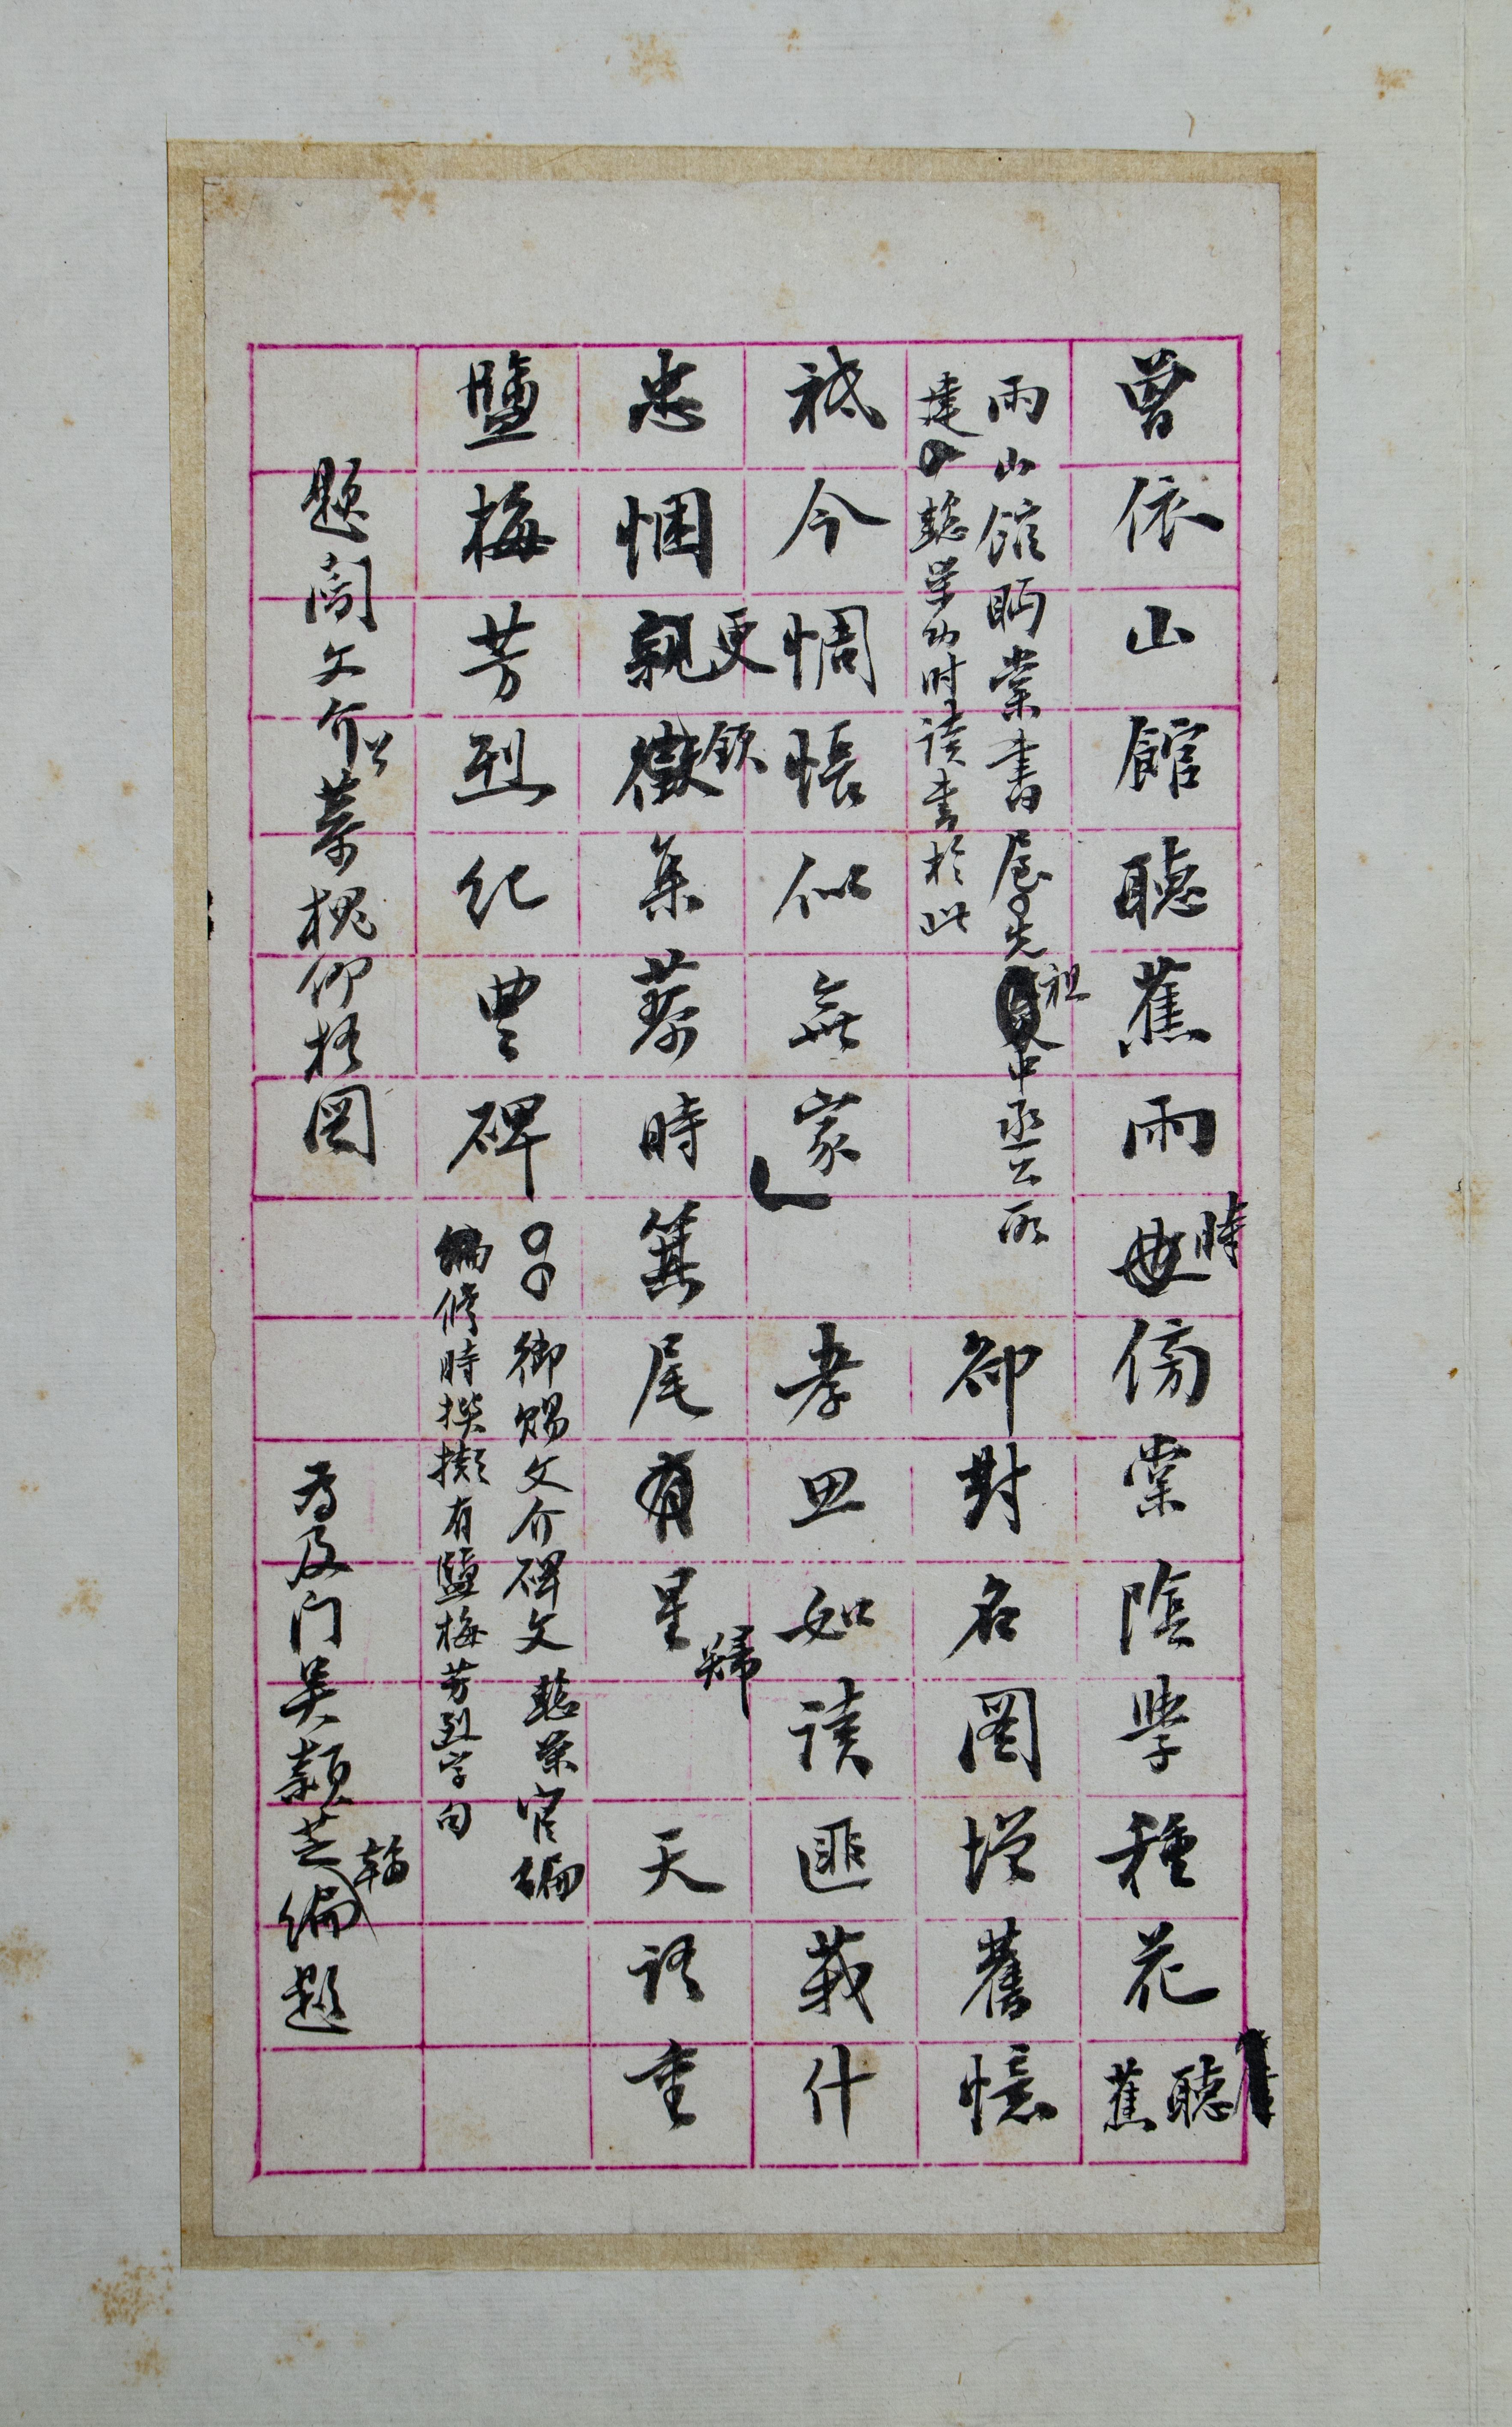 曾依山館聽蕉雨時傍棠陰學種花聽蕉
雨山館眄棠書屋先祖中丞公所
建懿榮幼時讀書於此
卻對名圖增舊憶
祗今惆悵似無家
孝思如讀匪莪什
忠悃更欽集蓼時箕尾有星歸
天語重
鹽梅芳烈紀豐碑
御賜文介碑文懿榮官編
修時撰擬有鹽梅芳烈字句
題閻文介公慕槐仰梧圖
為及门吴穎芝編翰題